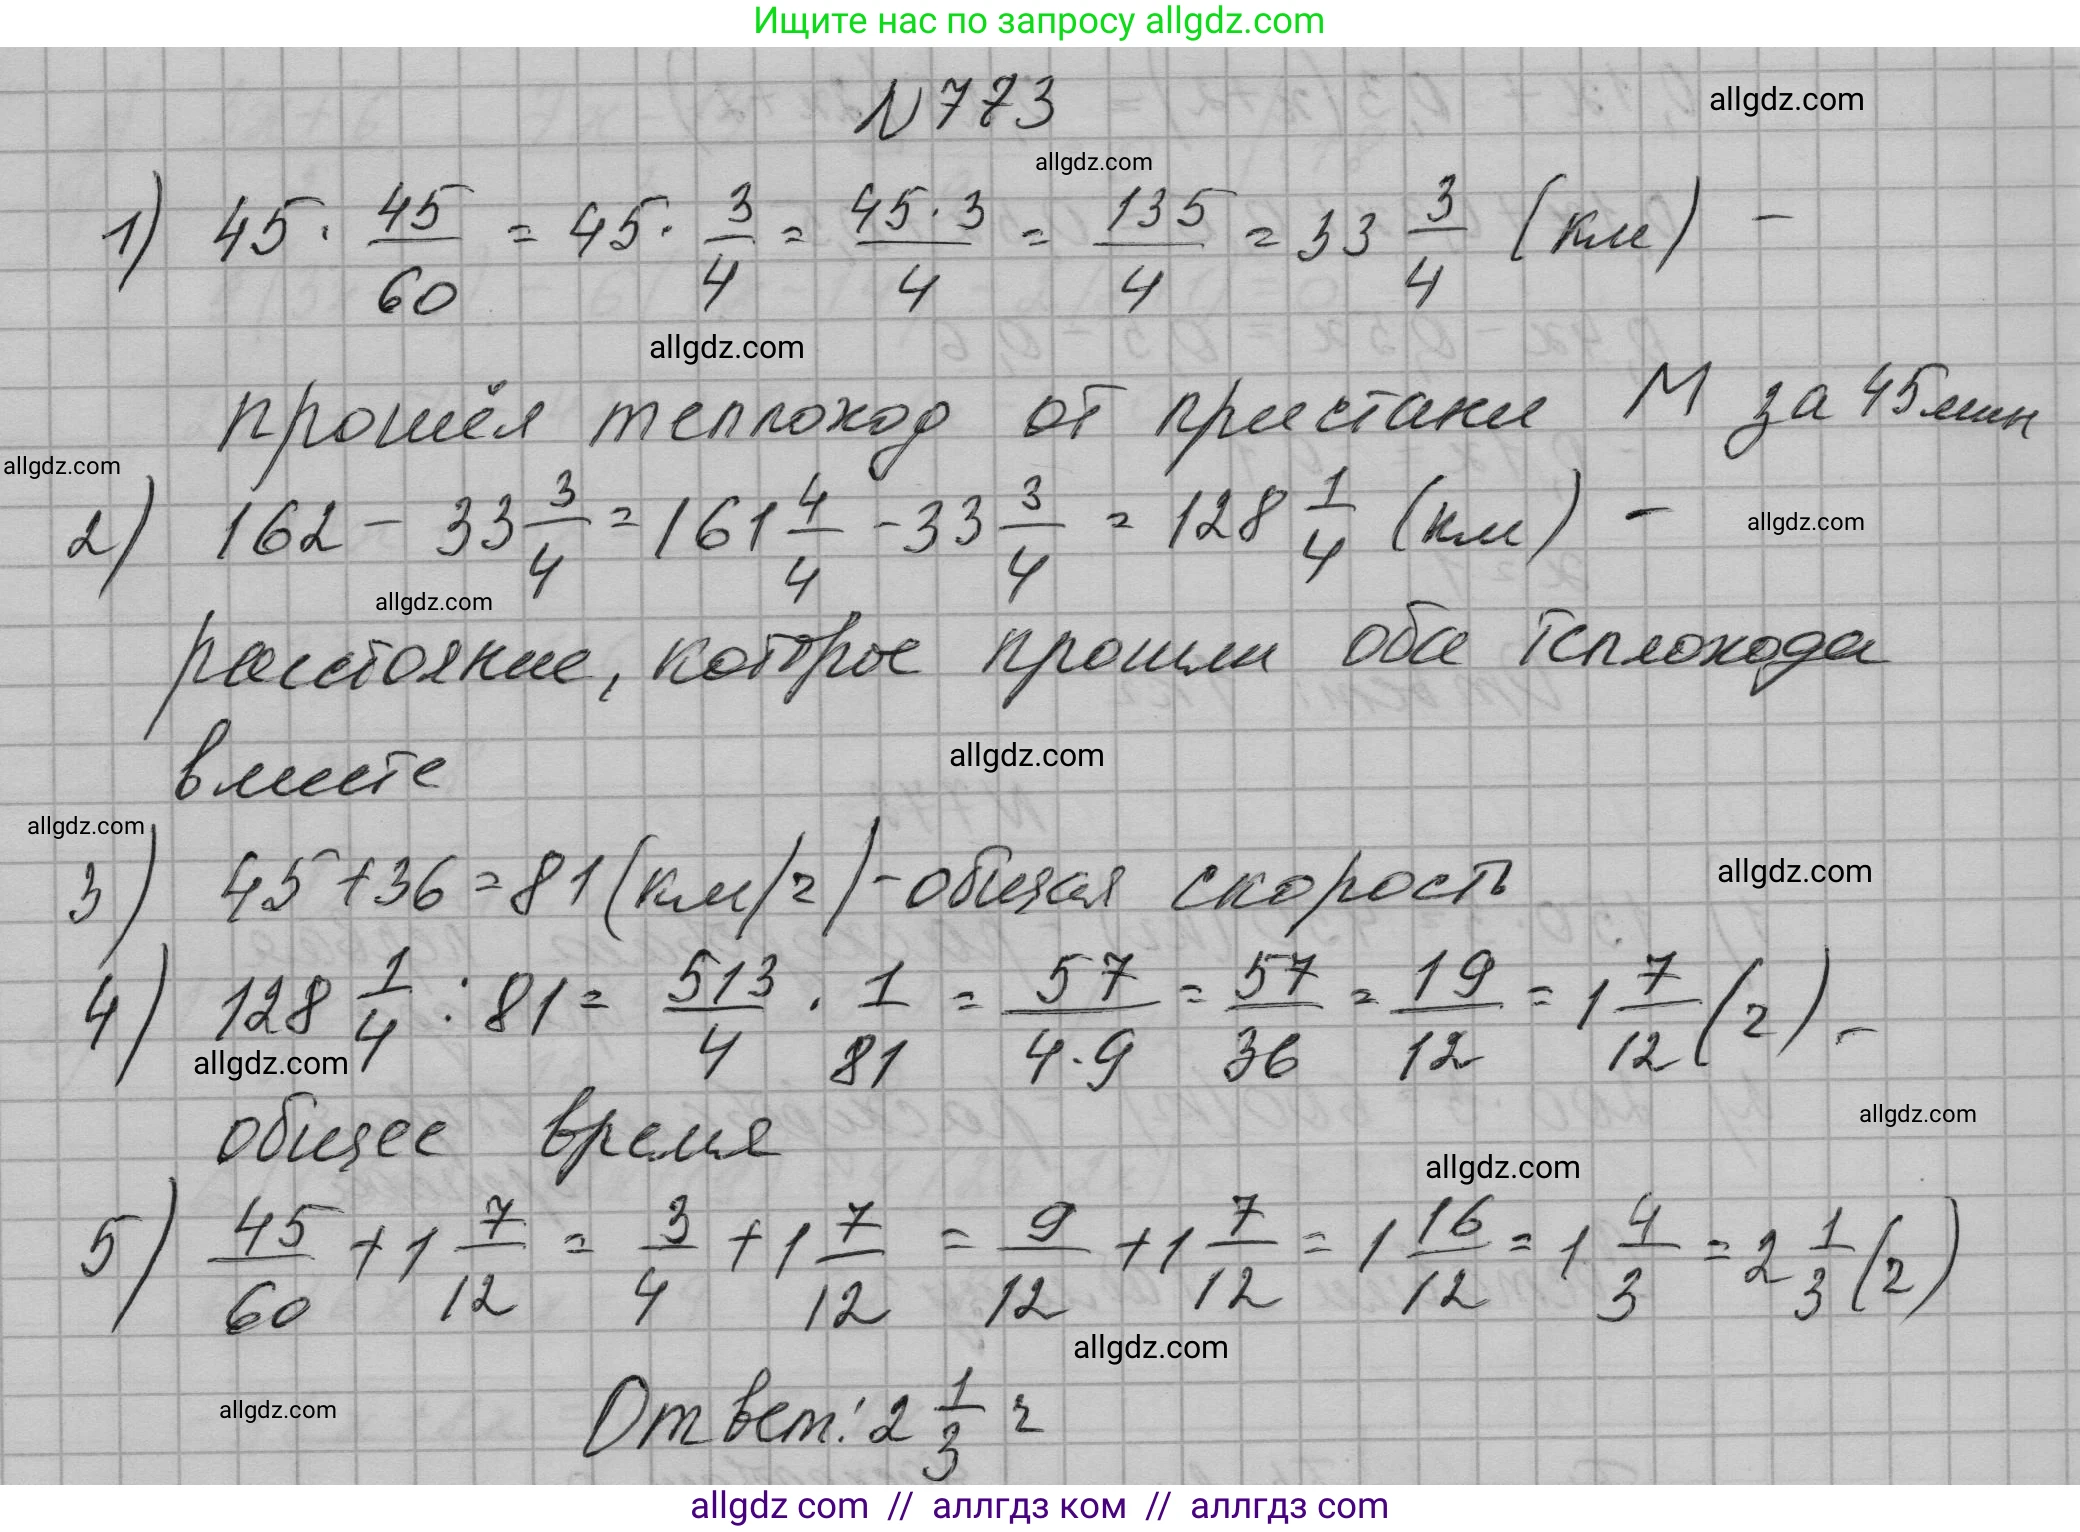 Ищите нас по запросу allgdz.com
N 773
allgdz.com
allgdz.com
1) 45 · 45/60 = 45 · 3/4 = 45·3/4 = 135/4 = 33 3/4 (км) –
allgdz.com
прошёл теплоход от пристани М за 45 мин
allgdz.com
2) 162 – 33 3/4 = 161 4/4 – 33 3/4 = 128 1/4 (км) –
allgdz.com
allgdz.com
расстояние, которое прошли оба теплохода
вместе
allgdz.com
allgdz.com
3) 45 + 36 = 81 (км/ч) – общая скорость
allgdz.com
4) 128 1/4 : 81 = 513/4 · 1/81 = 57/4·9 = 57/36 = 19/12 = 1 7/12 (ч) –
allgdz.com
общее время
allgdz.com
allgdz.com
5) 45/60 + 1 7/12 = 3/4 + 1 7/12 = 9/12 + 1 7/12 = 1 16/12 = 1 4/3 = 2 1/3 (ч)
allgdz.com
allgdz.com
Ответ: 2 1/3 ч
allgdz com // аллгдз ком // аллгдз com